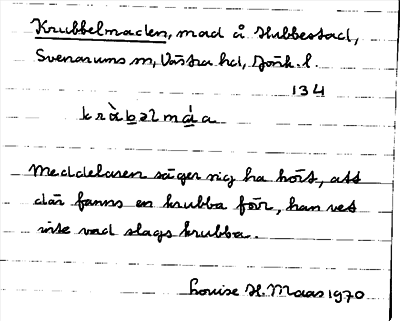 Krubbelmaden, mad å Hubbestad,
Svenarums sn, Västra hd, Jönk. l.
134
krùbəlmáa
Meddelaren säger sig ha hört, att
där fanns en krubba förr, han vet
inte vad slags krubba.
Louise H. Maas 1970